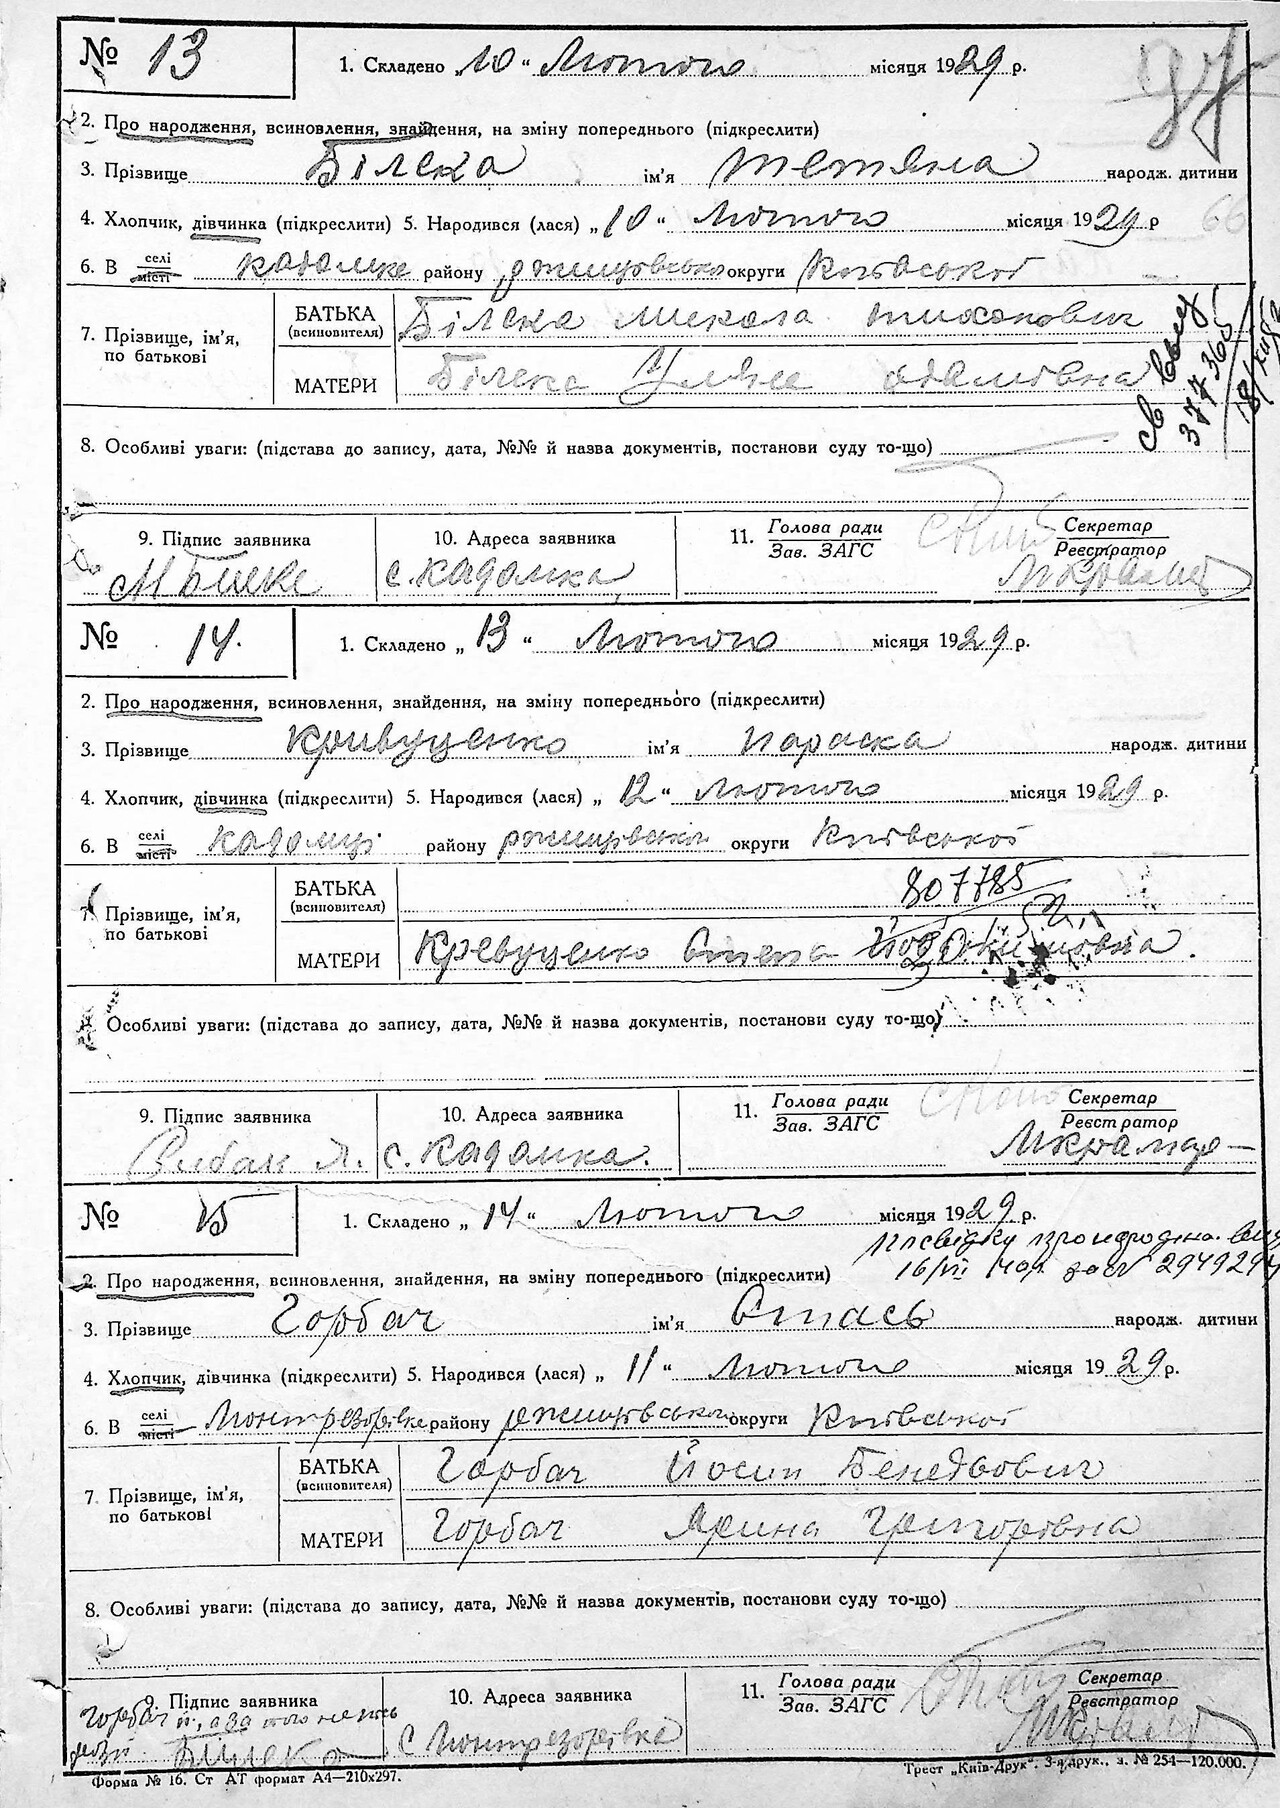 № 13
1. Складено „10“ Лютого місяця 1929 р.
2. Про народження, всиновлення, знайдення, на зміну попереднього (підкреслити)
3. Прізвище Білека ім'я Тетяна народж. дитини
4. Хлопчик, дівчинка (підкреслити) 5. Народився (лася) „10“ Лютого місяця 1929 р
6. В селі/місті Кадомке району ржищівсько округи Київської
7. Прізвище, ім'я, по батькові
БАТЬКА (всиновителя) Білека Микола тихонович
МАТЕРИ Білека Уляна адамовна
377365
8. Особливі уваги: (підстава до запису, дата, №№ й назва документів, постанови суду то-що)
9. Підпис заявника
10. Адреса заявника
11. Голова ради / Зав. ЗАГС
Секретар / Реєстратор
М Билека с. Кадомка
№ 14.
1. Складено „13“ Лютого місяця 1929 р.
2. Про народження, всиновлення, знайдення, на зміну попереднього (підкреслити)
3. Прізвище Кривуценко ім'я Параска народж. дитини
4. Хлопчик, дівчинка (підкреслити) 5. Народився (лася) „12“ Лютого місяця 1929 р.
6. В селі/місті Кадомці району ржищівсько округи Київської
7. Прізвище, ім'я, по батькові
БАТЬКА (всиновителя)
807785
МАТЕРИ Кревуценко Степа
8. Особливі уваги: (підстава до запису, дата, №№ й назва документів, постанови суду то-що)
9. Підпис заявника
10. Адреса заявника
11. Голова ради / Зав. ЗАГС
Секретар / Реєстратор
с. Кадомка.
№ 15
1. Складено „14“ Лютого місяця 1929 р.
16/VII 2949294
2. Про народження, всиновлення, знайдення, на зміну попереднього (підкреслити)
3. Прізвище Горбач ім'я Стась народж. дитини
4. Хлопчик, дівчинка (підкреслити) 5. Народився (лася) „11“ Лютого місяця 1929 р.
6. В селі/місті Монтрезорівке району ржищівської округи Київської
7. Прізвище, ім'я, по батькові
БАТЬКА (всиновителя) Горбач Йосип Бенедьович
МАТЕРИ Горбач Ярина Григоровна
8. Особливі уваги: (підстава до запису, дата, №№ й назва документів, постанови суду то-що)
9. Підпис заявника
10. Адреса заявника
11. Голова ради / Зав. ЗАГС
Секретар / Реєстратор
Горбач й., а за
Білека
с Монтрезорівке
Форма № 16. Ст АТ формат А4—210x297.
Трест „Київ-Друк“. 3-я друк., з. № 254—120.000.